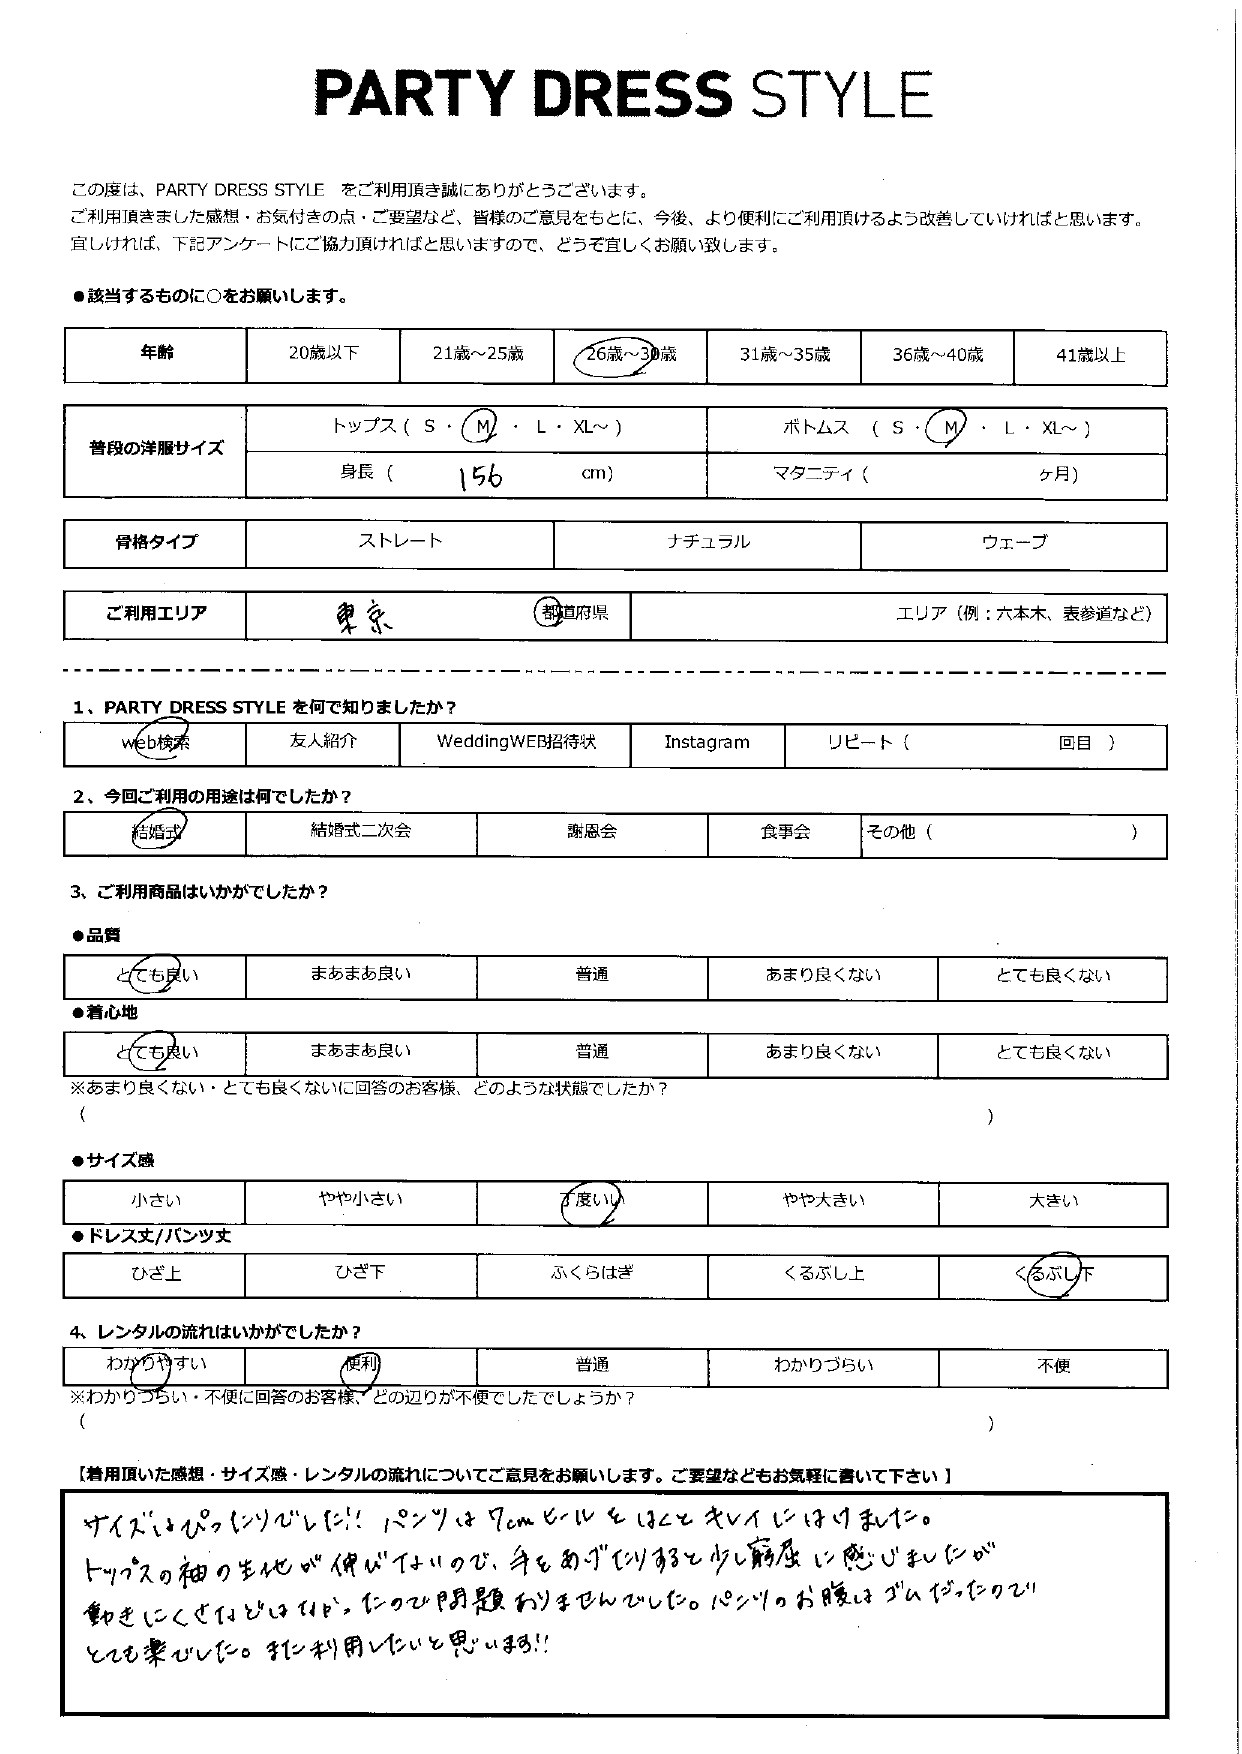 PARTY DRESS STYLE
この度は、PARTY DRESS STYLE をご利用頂き誠にありがとうございます。
ご利用頂きました感想・お気付きの点・ご要望など、皆様のご意見をもとに、今後、より便利にご利用頂けるよう改善していければと思います。
宜しければ、下記アンケートにご協力頂ければと思いますので、どうぞ宜しくお願い致します。
●該当するものに○をお願いします。
年齢 20歳以下 21歳～25歳 26歳～30歳 31歳～35歳 36歳～40歳 41歳以上
普段の洋服サイズ トップス ( S ・ M ・ L ・ XL～ ) ボトムス ( S ・ M ・ L ・ XL～ )
身長 ( 156 cm) マタニティ ( ヶ月)
骨格タイプ ストレート ナチュラル ウェーブ
ご利用エリア 東京 都道府県 エリア（例：六本木、表参道など）
1、PARTY DRESS STYLE を何で知りましたか？
web検索 友人紹介 WeddingWEB招待状 Instagram リピート ( 回目 )
2、今回ご利用の用途は何でしたか？
結婚式 結婚式二次会 謝恩会 食事会 その他 ( )
3、ご利用商品はいかがでしたか？
●品質
とても良い まあまあ良い 普通 あまり良くない とても良くない
●着心地
とても良い まあまあ良い 普通 あまり良くない とても良くない
※あまり良くない・とても良くないに回答のお客様、どのような状態でしたか？
( )
●サイズ感
小さい やや小さい 丁度いい やや大きい 大きい
●ドレス丈/パンツ丈
ひざ上 ひざ下 ふくらはぎ くるぶし上 くるぶし下
4、レンタルの流れはいかがでしたか？
わかりやすい 便利 普通 わかりづらい 不便
※わかりづらい・不便に回答のお客様、どの辺りが不便でしたでしょうか？
( )
【着用頂いた感想・サイズ感・レンタルの流れについてご意見をお願いします。ご要望などもお気軽に書いて下さい】
サイズはぴったりでした!! パンツは7cmヒールをはくとキレイにはけました。
トップスの袖の生地が伸びないので、手をあげたりすると少し窮屈に感じましたが
動きにくさなどはなかったので問題ありませんでした。パンツのお腹はゴムだったので
とても楽でした。また利用したいと思います!!